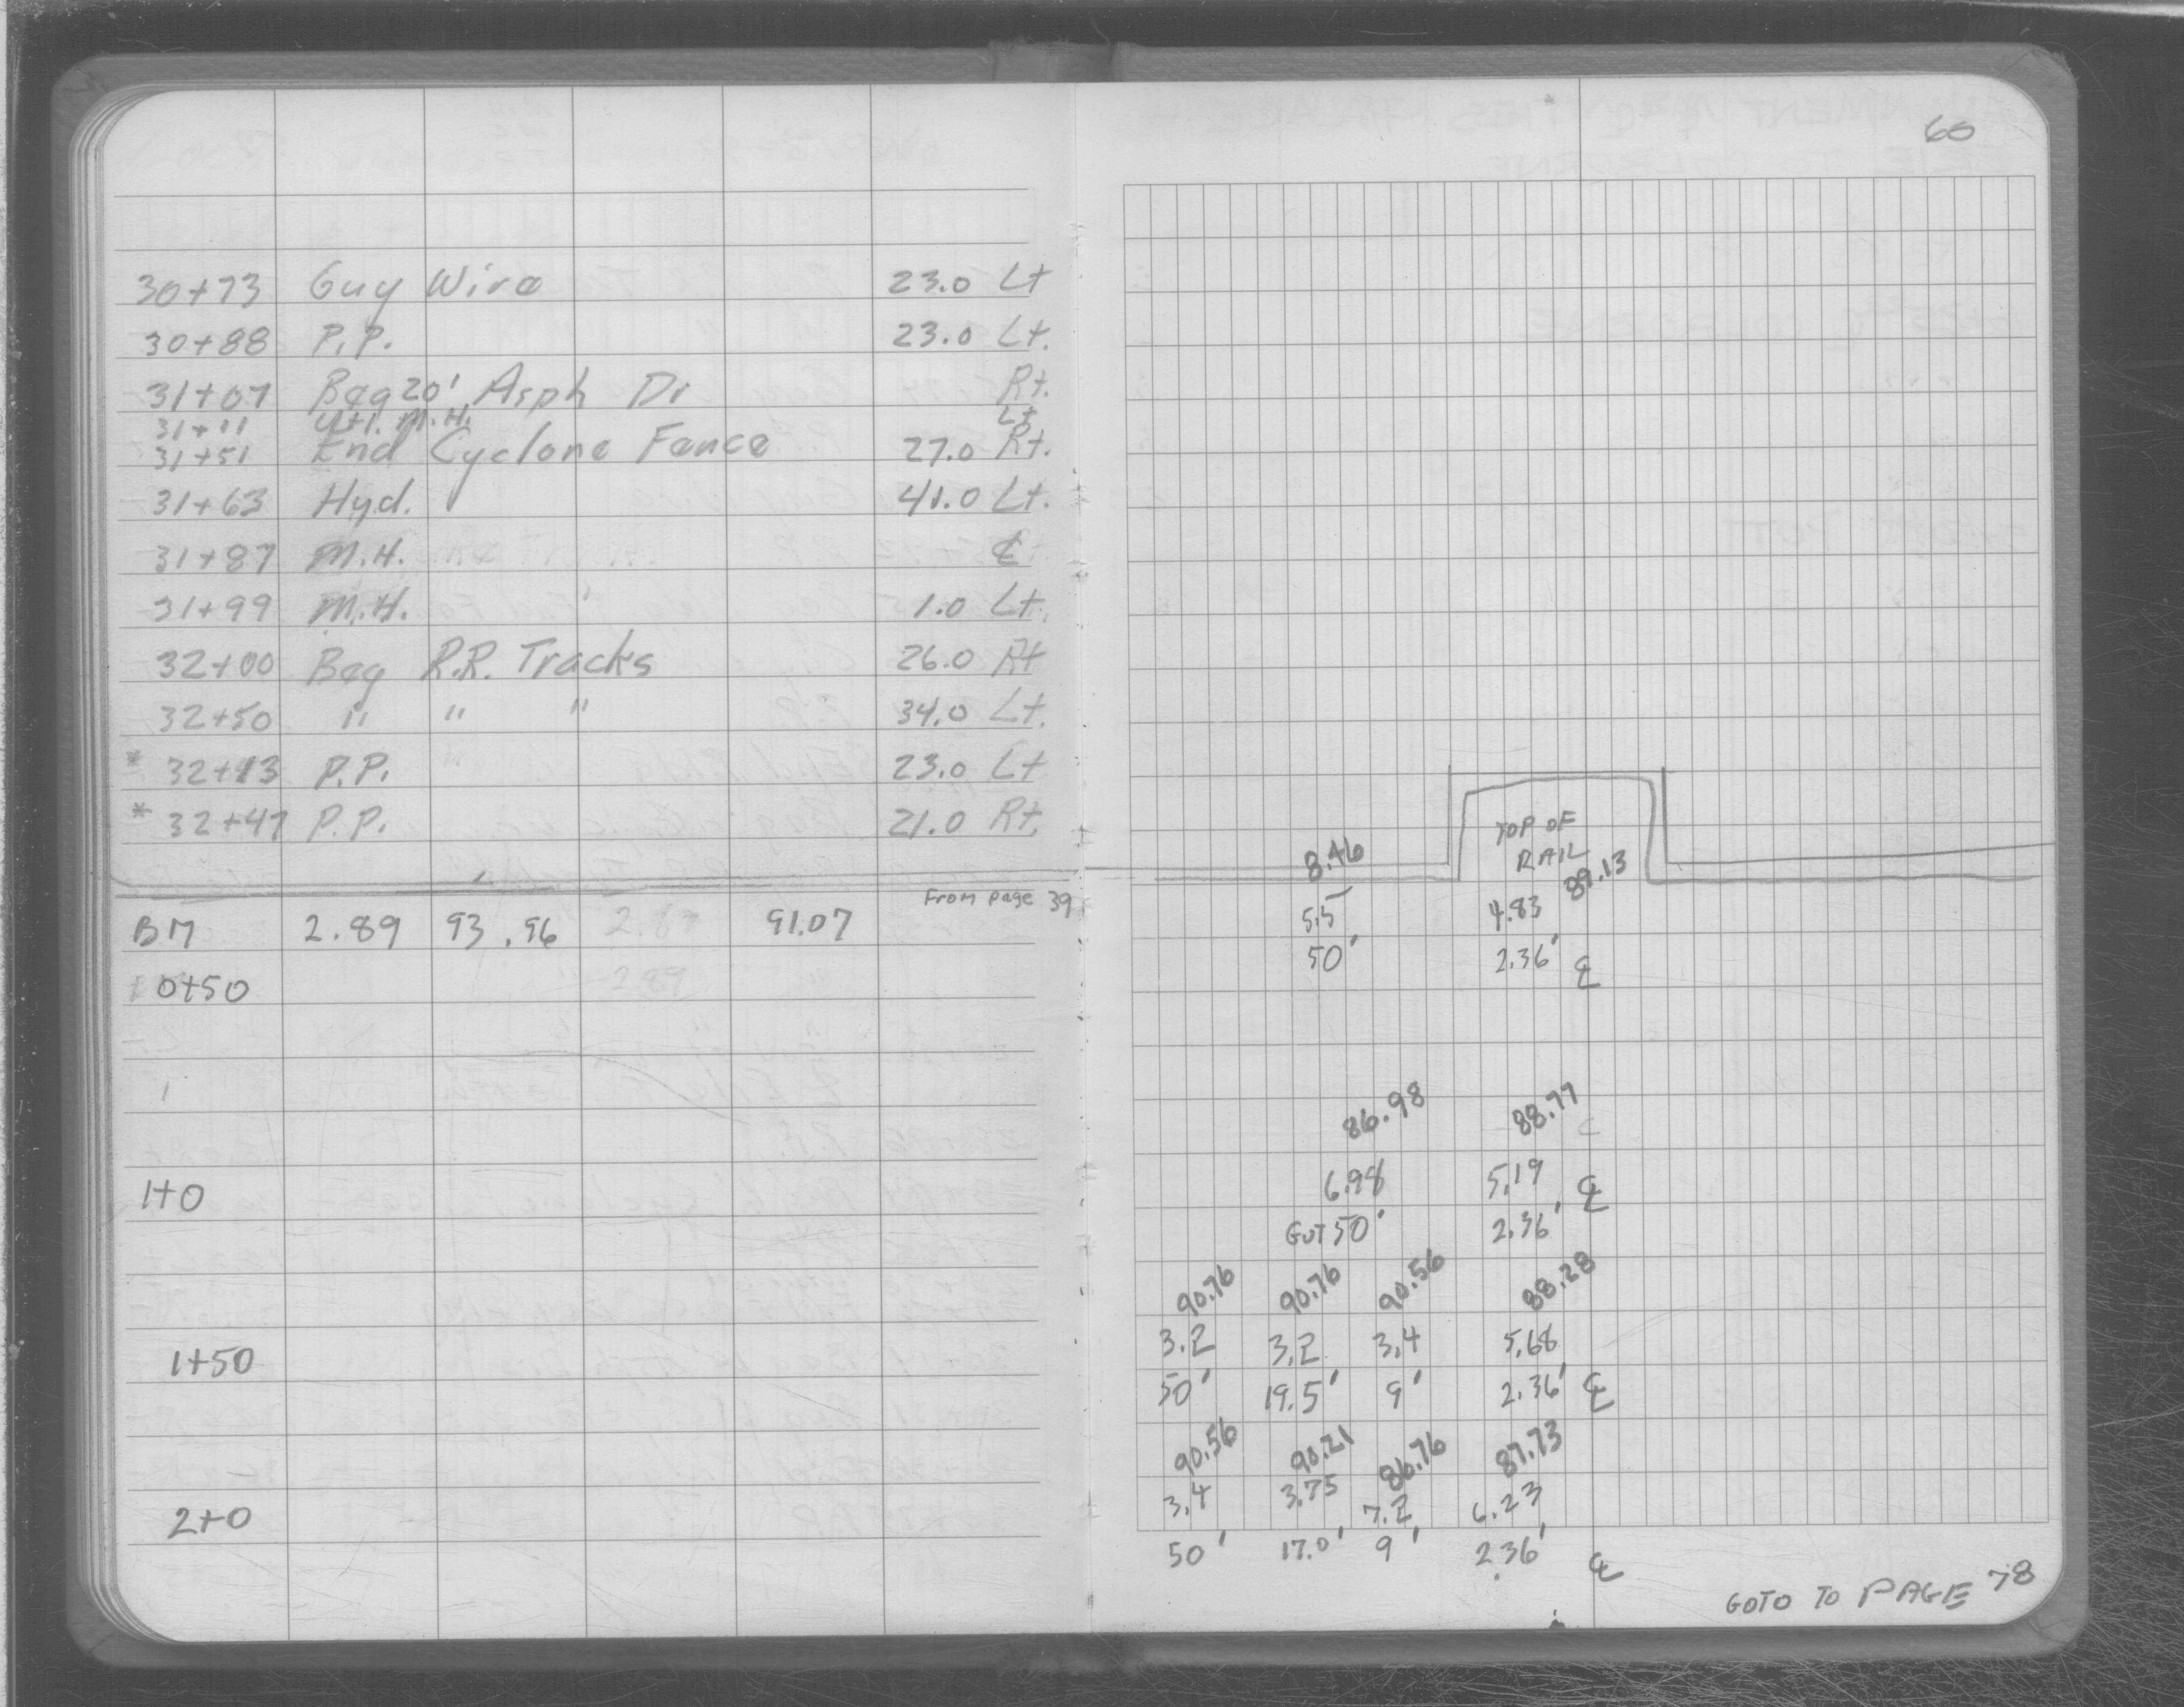 30+73 Guy Wire 23.0 Lt
30+88 P.P. 23.0 Lt.
31+07 Beg 20' Asph Dr Rt.
31+11 Util. M.H. Lt.
31+51 End Cyclone Fence 27.0 Rt.
31+63 Hyd. 41.0 Lt.
31+87 M.H. ℄
31+99 M.H. 1.0 Lt.
32+00 Beg R.R. Tracks 26.0 Rt
32+50 " " " 34.0 Lt.
* 32+13 P.P. 23.0 Lt
* 32+47 P.P. 21.0 Rt.
From page 39
BM 2.89 93.96 91.07
0+50
1+0
1+50
2+0
60
TOP OF
8.46 RAIL 89.13
5.5 4.83
50' 2.36' ℄
86.98 88.77
6.98 5.19 ℄
GUT 50' 2.36'
90.76 90.76 90.56 88.28
3.2 3.2 3.4 5.68
50' 19.5' 9' 2.36' ℄
90.56 90.21 86.76 87.73
3.4 3.75 7.2 6.23
50' 17.0' 9' 2.36' ℄
GOTO TO PAGE 78